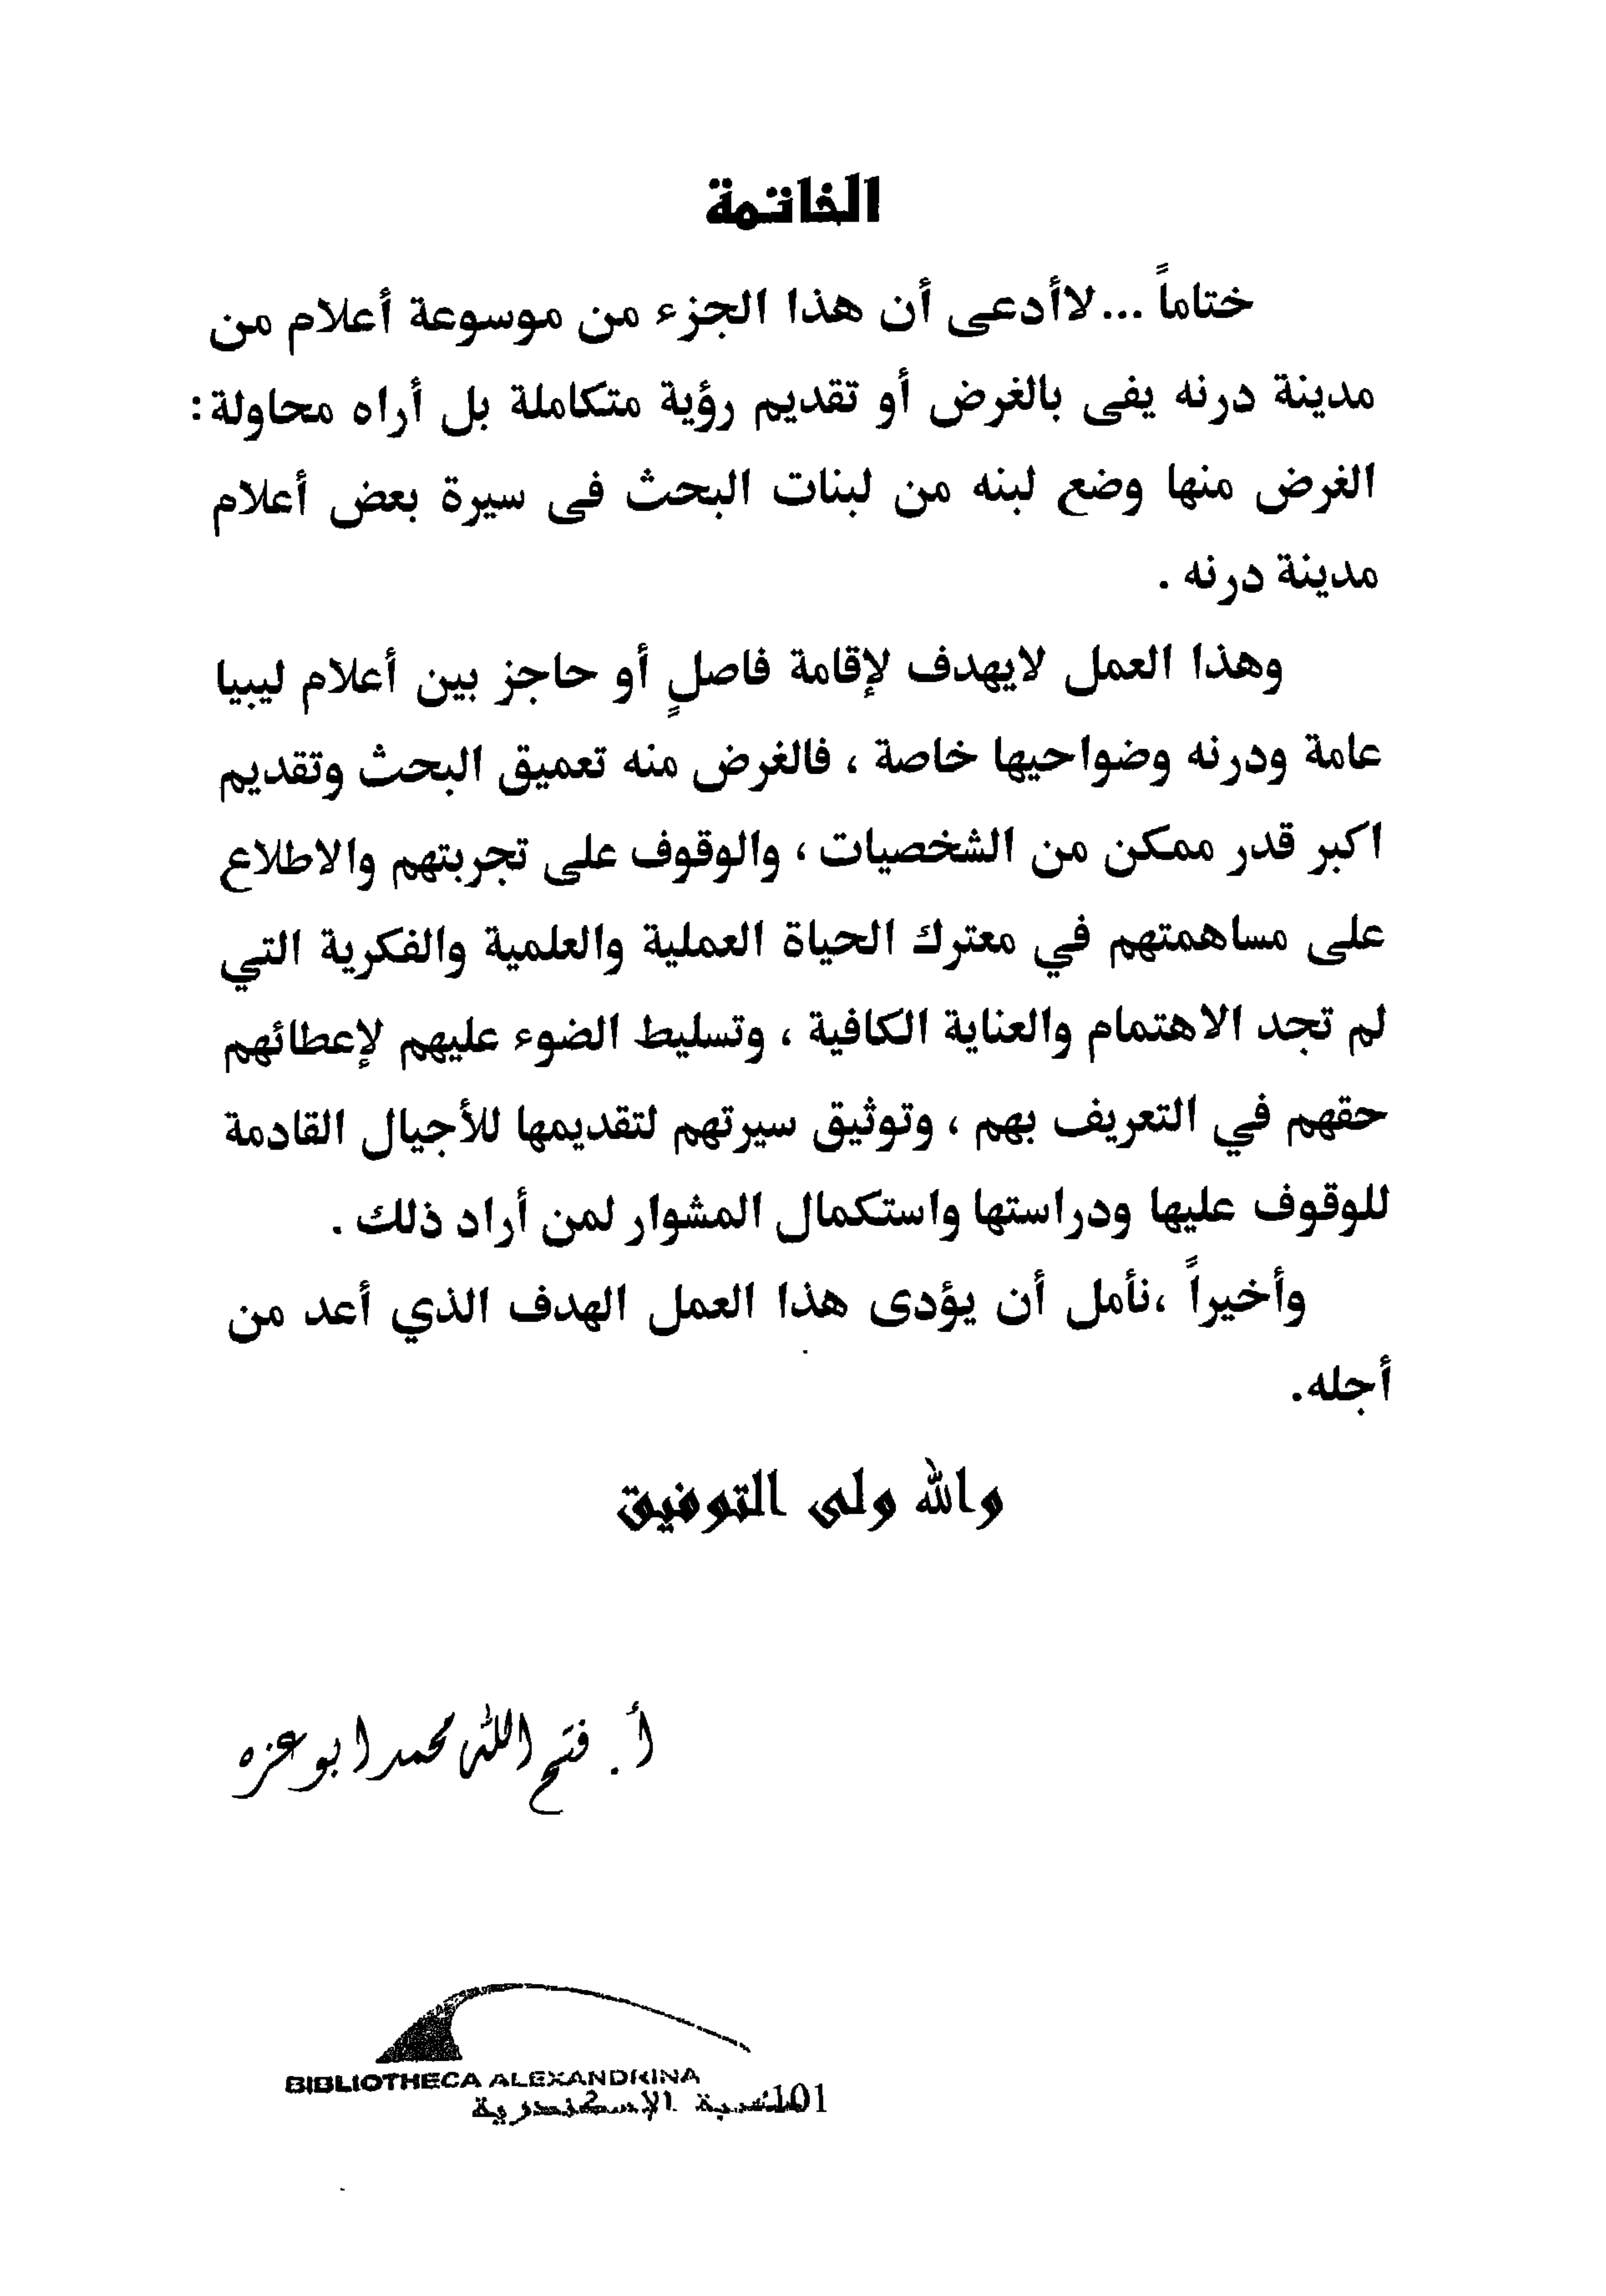 الخاتمة
ختاماً ...لاأدعى أن هذا الجزء من موسوعة أعلام من
مدينة درنه يفى بالغرض أو تقديم رؤية متكاملة بل أراه محاولة:
الغرض منها وضع لبنه من لبنات البحث فى سيرة بعض أعلام
مدينة درنه .
وهذا العمل لايهدف لإقامة فاصلٍ أو حاجز بين أعلام ليبيا
عامة ودرنه وضواحيها خاصة ، فالغرض منه تعميق البحث وتقديم
اكبر قدر ممكن من الشخصيات ، والوقوف على تجربتهم والاطلاع
على مساهمتهم في معترك الحياة العملية والعلمية والفكرية التي
لم تجد الاهتمام والعناية الكافية ، وتسليط الضوء عليهم لإعطائهم
حقهم في التعريف بهم ، وتوثيق سيرتهم لتقديمها للأجيال القادمة
للوقوف عليها ودراستها واستكمال المشوار لمن أراد ذلك .
وأخيراً ،نأمل أن يؤدى هذا العمل الهدف الذي أعد من
أجله.
والله ولى التوفيق
أ. فتح الله محمد ابو عزه
BIBLIOTHECA ALEXANDRINA
مكتبة الإسكندرية
101